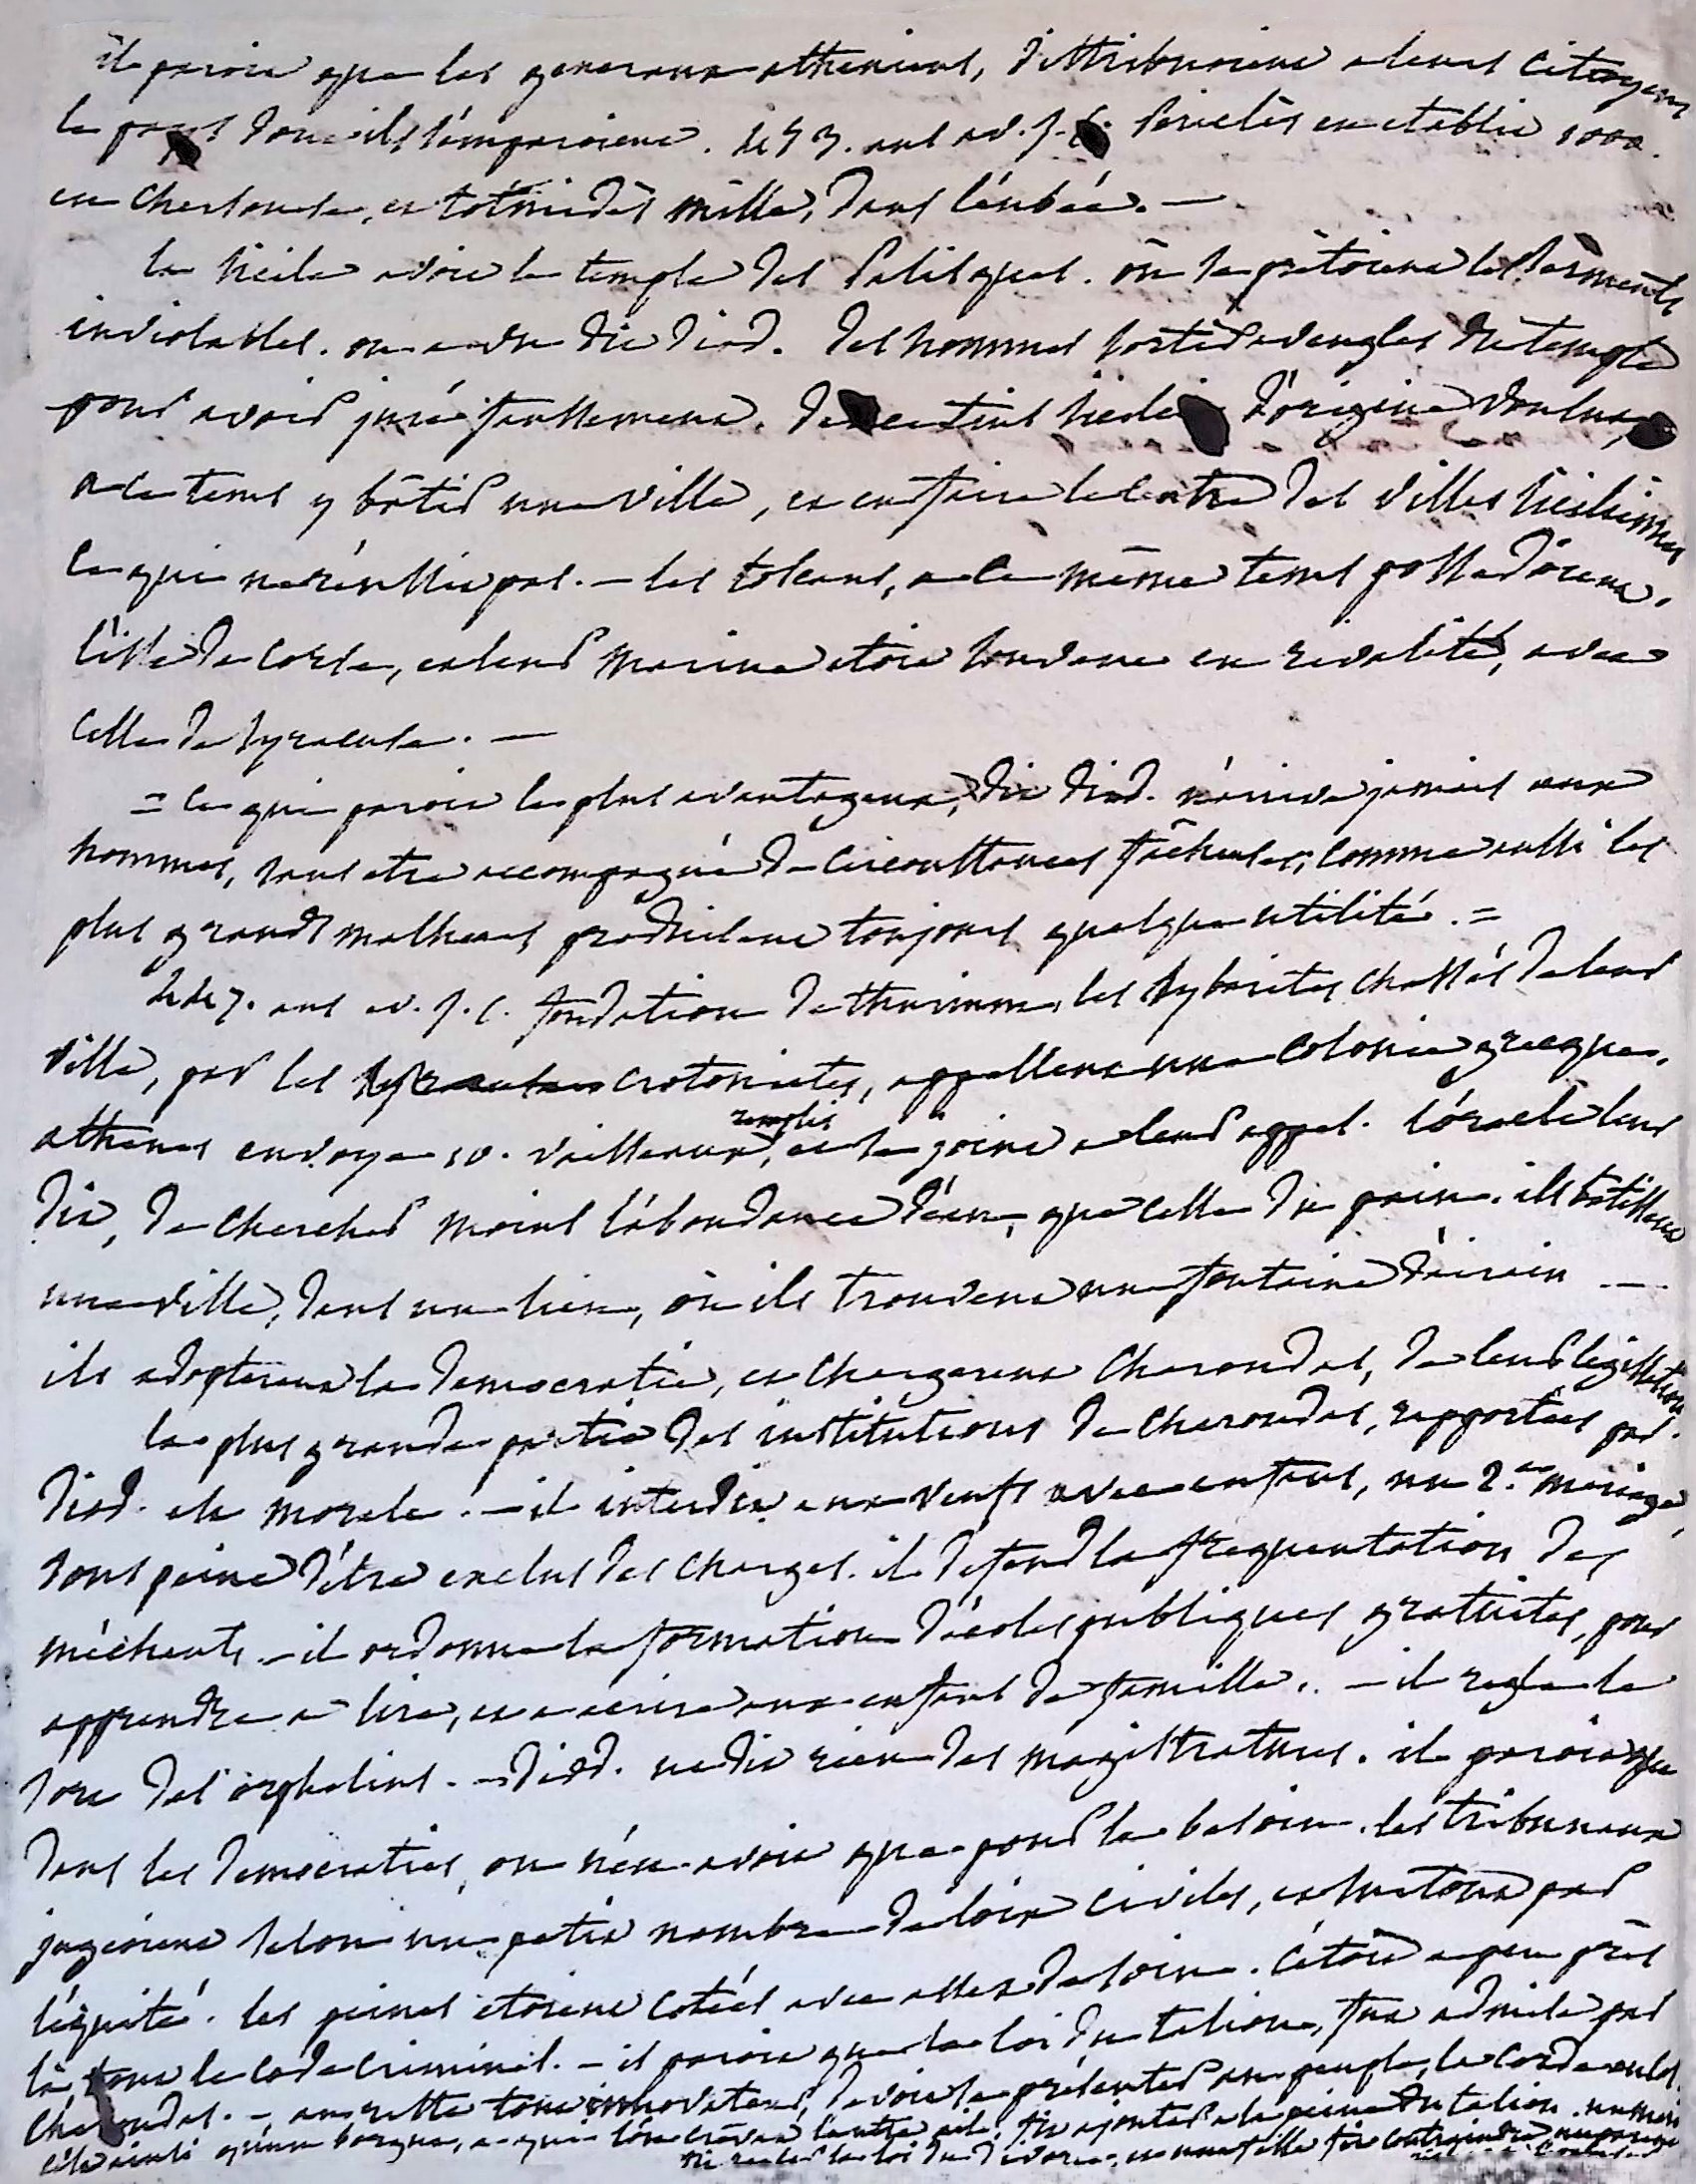 il paroit que les generaux atheniens, distribuoient a leurs citoyens
le pays dont ils s'emparoient. 453. ans av. J. C. Periclès en etablit 1000.
en Chersonese, et tolmidès mille, dans l'eubée. —
la Sicile avoit le temple des Palisques. où se prêtoient les serments
inviolables. on a vu dit Diod. des hommes sortir aveugles du temple
pour avoir juré faussement. d'origine voulut
a ce tems y bâtir une ville, et en faire le centre des villes siciliennes
ce qui ne réussit pas. — les toscans, a ce même tems possedoient
l'isle de Corse, et leur marine etoit souvent en rivalité, avec
celle de Syracuse. —
= ce qui paroit le plus avantageux, dit Diod. n'arrive jamais aux
hommes, sans etre accompagné de circonstances fâcheuses; comme aussi les
plus grands malheurs produisent toujours quelque utilité. =
447. ans av. J. C. fondation de thurium, les Sybarites chassés de leur
ville, par les crotoniates, appellent une colonie grecque.
athenes envoye 10. vaisseaux remplis, et se joint a leur appel. l'oracle leur
dit, de chercher moins l'abondance d'eau, que celle du pain. ils batissent
une ville, dans un lieu, où ils trouvent une fontaine d'airain —
ils adopterent la democratie, et chargerent Charondas, de leur legislation
la plus grande partie des institutions de Charondas, rapportées par
Diod. est morale. — il interdit aux veufs avec enfans, un 2.e mariage,
sous peine d'être exclus des charges. il defend la frequentation des
méchants. — il ordonne la formation d'écoles publiques gratuites, pour
apprendre a lire, et a ecrire aux enfans de famille. — il regle le
sort des orphelins. — Diod. ne dit rien des magistratures. il paroit que
dans les democraties, on n'en avoit que pour le besoin. les tribunaux
jugeoient selon un petit nombre de loix civiles, et surtout par
l'équité. les peines etoient cotées avec assez de soin. c'etoit a peu près
là, tout le code criminel. — il paroit que la loi du talion, fut admise par
Charondas. — au reste tout innovateur, devoit se présenter au peuple, la corde au col.
c'est ainsi qu'un borgne, a qui l'on crêva l'autre œil, fit ajouter a la peine du talion.